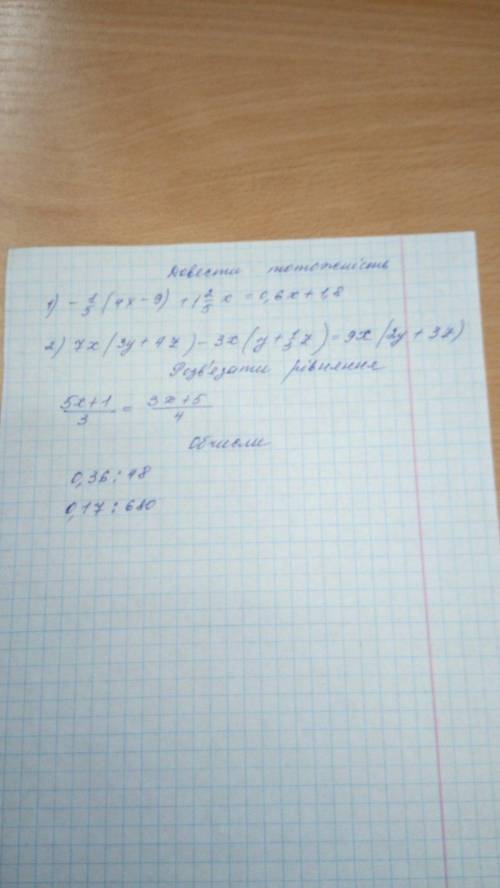 Довести тотожність
1) -1/5(4x-9)+1 2/5 x = 0,6x+1,8
2) 7x(3y+4z)-3x(y+1/3 z)=9x(2y+3z)
Розв'язати рівняння
5x+1/3 = 3x+5/4
Обчисли
0,36:48
0,17:680